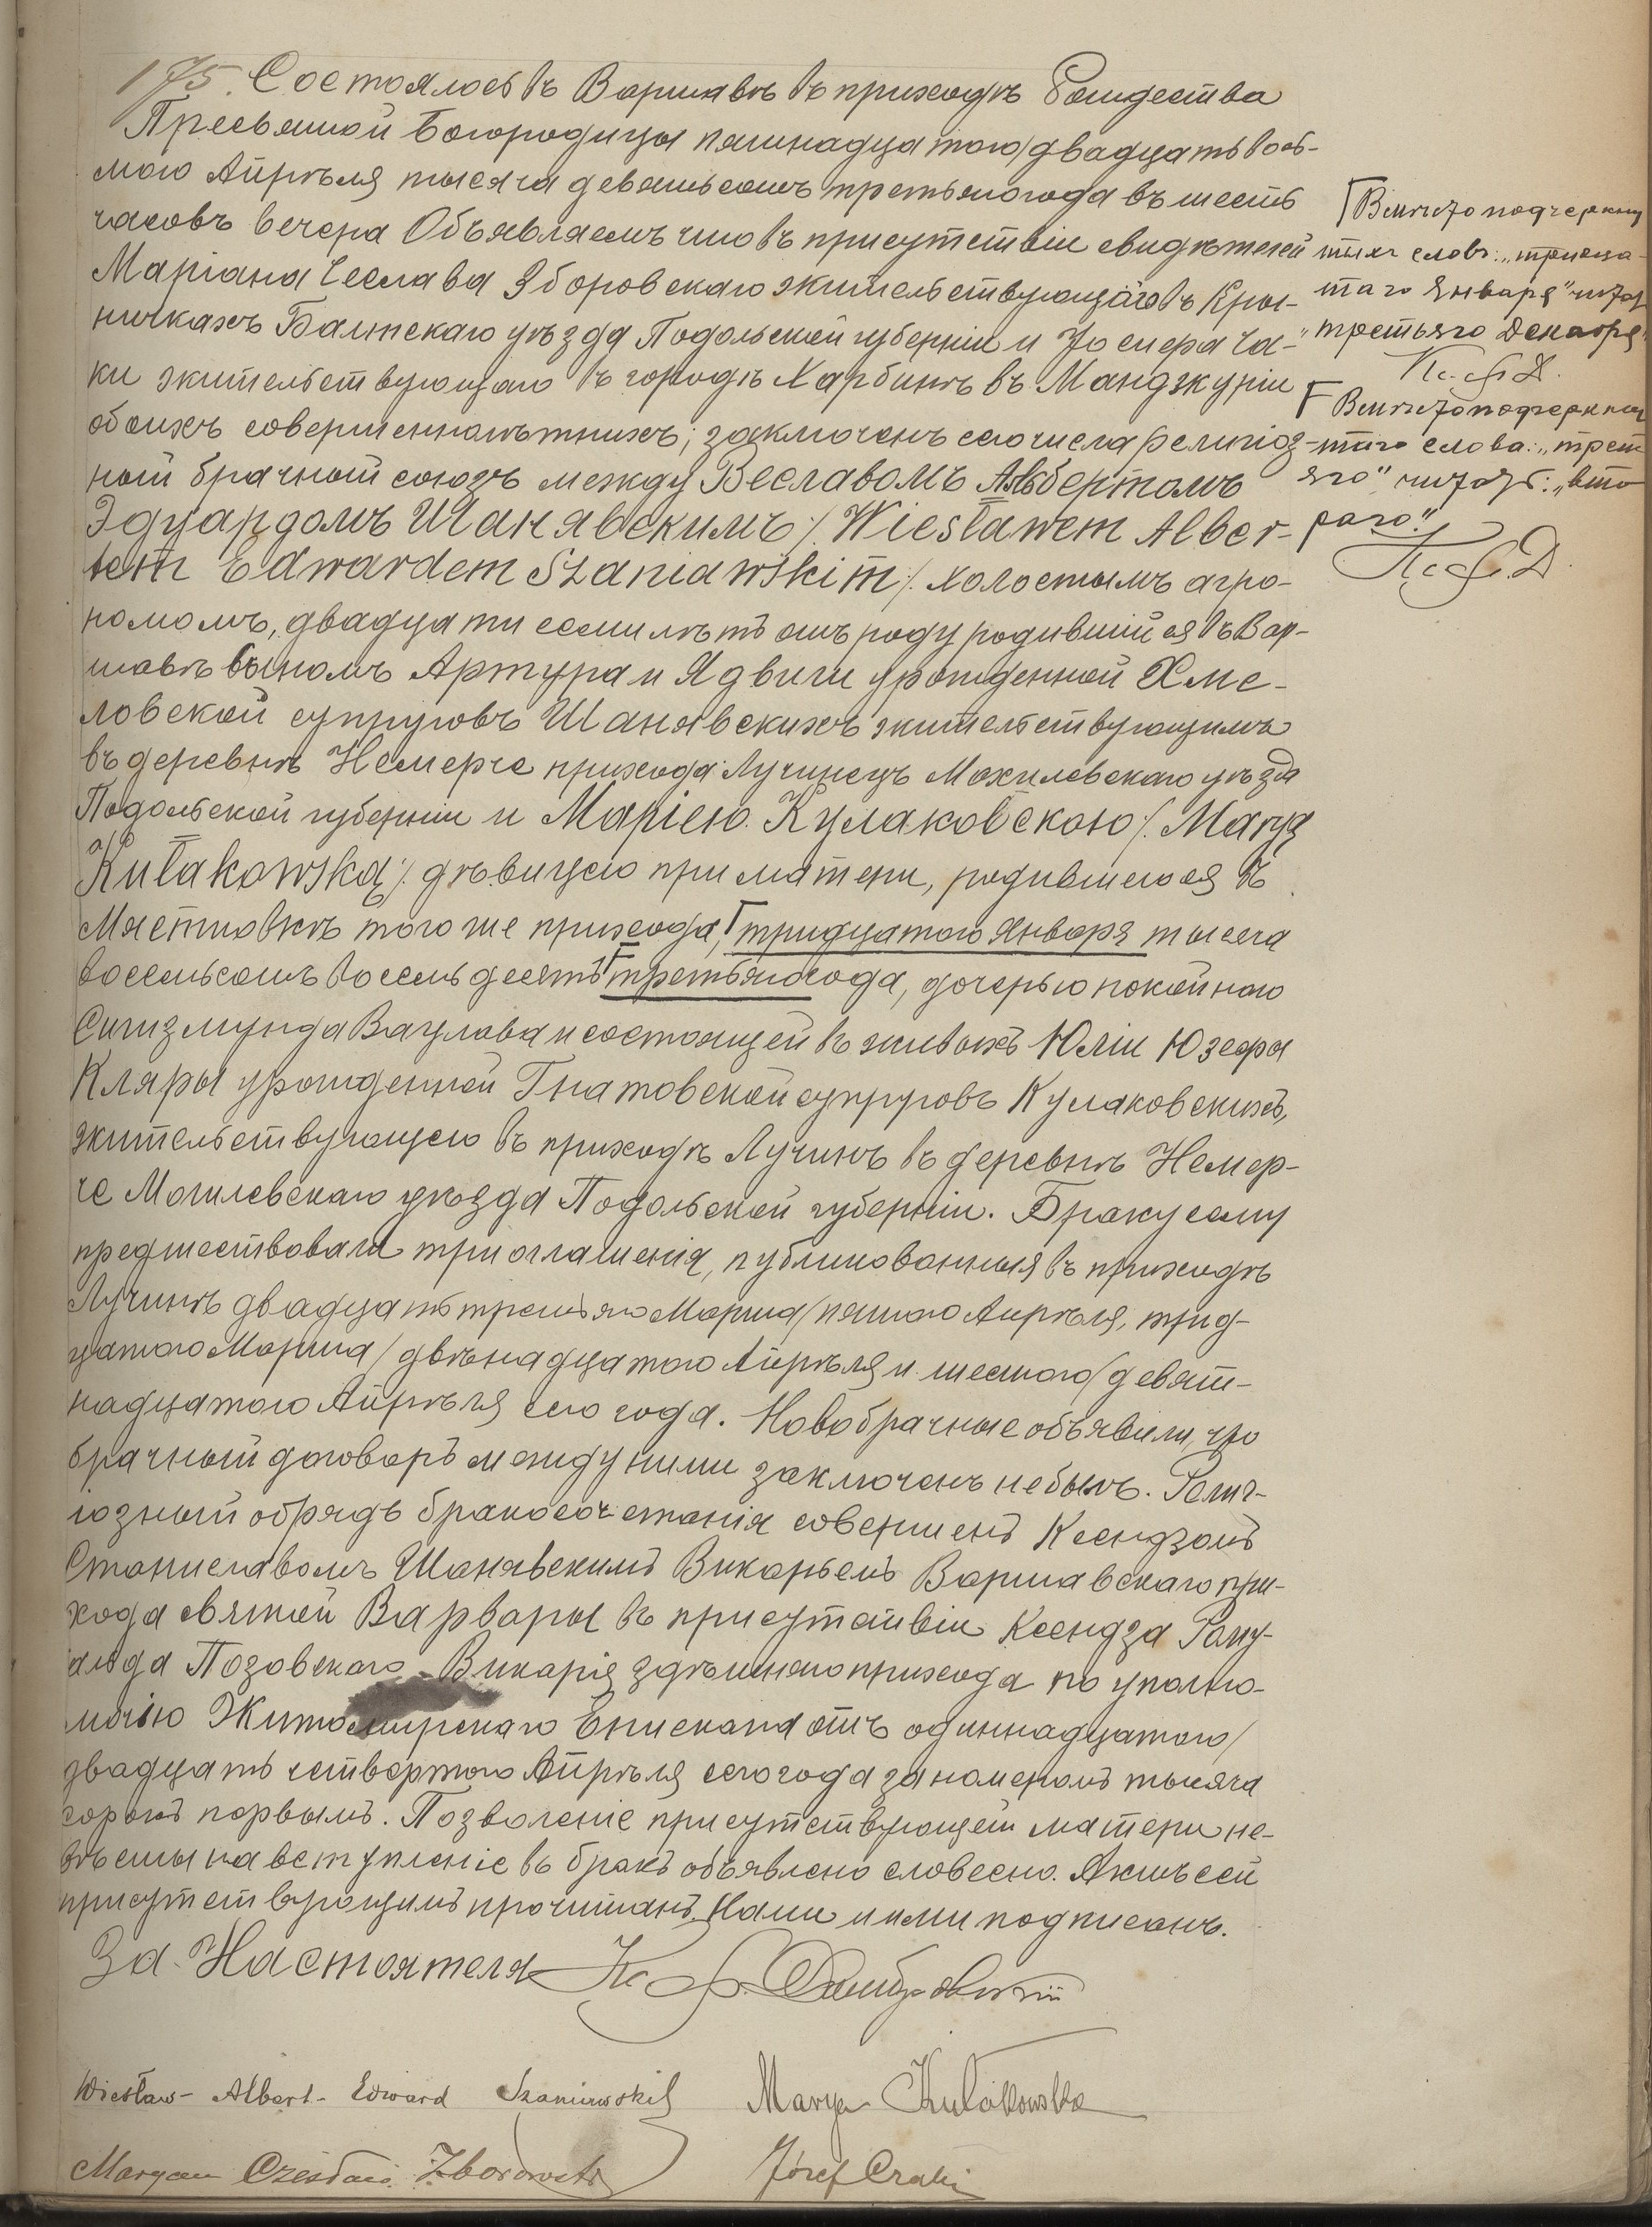 175. Состоялось въ Варшавѣ въ приходѣ Рождества
Пресвятой Богородицы пятнадцатаго/двадцать вось-
мого Апрѣля тысяча девятьсотъ третьяго года въ шесть
часовъ вечера Объявляемъ что въ присутствіи свидѣтелей
Маріана Чеслава Зборовскаго жительствующаго въ Кры-
ничкахъ Балтскаго уѣзда Подольской губерніи и Іосифа Ча-
ки жительствующаго въ городѣ Харбинѣ въ Манджуріи
обоихъ совершеннолѣтнихъ; заключенъ сего числа религіоз-
ный брачный союзъ между Веславомъ Альбертомъ
Эдуардомъ Шанявскимъ /. Wiesławem Alber-
tem Edwardem Szaniawskim /. холостымъ агро-
номомъ, двадцати семи лѣтъ отъ роду родившійся въ Вар-
шавѣ сыномъ Артура и Ядвиги урожденной Хме-
ловской супруговъ Шанявскихъ жительствующимъ
въ деревнѣ Немерче прихода Лучинецъ Могилевскаго уѣзда
Подольской губерніи и Маріею Кулаковскою /. Maryą
Kułakowską /. дѣвицею при матери, родившеюся въ
Мястковкѣ того же прихода, тридцатаго Января тысяча
восемьсотъ восемьдесятъ третьяго года, дочерью покойнаго
Сигизмунда Вацлава и состоящей въ живыхъ Юліи Юзефы
Кляры урожденной Гнатовской супруговъ Кулаковскихъ,
жительствующею въ приходѣ Лучинѣ въ деревнѣ Немер-
че Могилевскаго уѣзда Подольской губерніи. Браку сему
предшествовали три оглашенія, публикованныя въ приходѣ
Лучинѣ двадцать третьяго Марта/пятаго Апрѣля, трид-
цатаго Марта/двѣнадцатаго Апрѣля и шестого/девят-
надцатаго Апрѣля сего года. Новобрачные объявили, что
брачный договоръ между ними заключенъ не былъ. Религ-
іозный обрядъ бракосочетанія совершенъ Ксендзомъ
Станиславомъ Шанявскимъ Викаріемъ Варшавскаго при-
хода святой Варвары въ присутствіи Ксендза Рому-
альда Позовскаго Викарія здѣшняго прихода по уполно-
мочію Житомирскаго Епископа отъ одиннадцатаго/
двадцать четвертаго Апрѣля сего года за номеромъ тысяча
сорокъ первымъ. Позволеніе присутствующей матери не-
вѣсты на вступленіе въ бракъ объявлено словесно. Актъ сей
присутствующимъ прочитанъ Нами и ими подписанъ.
За Настоятеля Кс.
Wiesław-Albert-Edward Szaniawski Marya Kułakowska
Maryan Czesław Zborowski Józef Czaki
Вмѣсто подчеркну
тыхъ словъ: „тридца-
таго Января" читать
„третьяго Декабря"
Кс. Ф. Д.
Вмѣсто подчеркну
таго слова: „треть
яго" читать: „вто
раго".
Кс. Ф. Д.